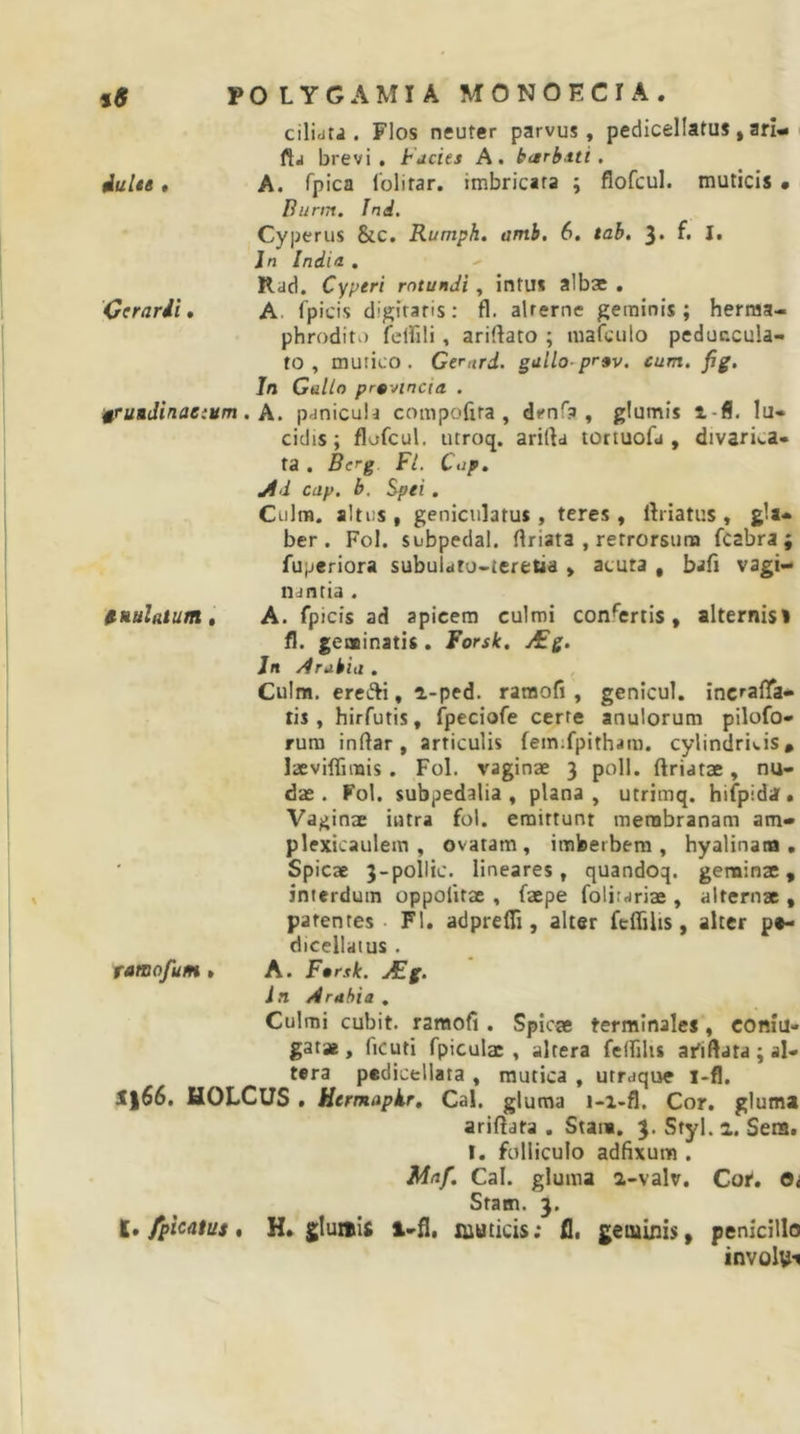 18 POLYGAMIA MONOECIA.
ciliata. Flos neuter parvus, pedicellatus, ari-
ſta brevi. Facies A. barbati.
dulce. A. ſpica ſolitar. imbricata; floſcul. muticis.
Burm. Ind.
Cyperus &c. Rumph. amb. 6. tab. 3. f. 1.
In India.
Rad. Cyperi rotundi, intus albæ.
Gerardi. A. ſpicis digitatis: fl. alterne geminis; herma-
phrodito ſeſſili, ariſtato; maſculo peduncula-
to, mutico. Gerard. gallo-prov. cum. fig.
In Gallo provincia.
arundinaceum. A. panicula compoſita, denſa, glumis 2-fl. lu-
cidis; floſcul. utroq. ariſta tortuoſa, divarica-
ta. Berg. Fl. Cap.
Ad cap. b. Spei.
Culm. altus, geniculatus, teres, ſtriatus, gla-
ber. Fol. subpedal. ſtriata, retrorsum ſcabra;
ſuperiora subulato-teretia, acuta, baſi vagi-
nantia.
annulatum. A. ſpicis ad apicem culmi confertis, alternis;
fl. geminatis. Forsk. Æg.
In Arabia.
Culm. erecti, 2-ped. ramoſi, genicul. incraſſa-
tis, hirſutis, ſpecioſe certe anulorum piloſo-
rum inſtar, articulis ſemiſpitham. cylindricis,
læviſſimis. Fol. vaginæ 3 poll. ſtriatæ, nu-
dæ. Fol. subpedalia, plana, utrimq. hiſpida.
Vaginæ intra fol. emittunt membranam am-
plexicaulem, ovatam, imberbem, hyalinam.
Spicæ 3-pollic. lineares, quandoq. geminæ,
interdum oppoſitæ, ſæpe ſolitariæ, alternæ,
patentes. Fl. adpreſſi, alter ſeſſilis, alter pe-
dicellatus.
ramoſum. A. Forsk. Æg.
In Arabia.
Culmi cubit. ramoſi. Spicæ terminales, coniu-
gatæ, ſicuti ſpiculæ, altera ſeſſilis ariſtata; al-
tera pedicellata, mutica, utraque 1-fl.
1166. HOLCUS. Hermaphr. Cal. gluma 1-2-fl. Cor. gluma
ariſtata. Stam. 3. Styl. 2. Sem.
1. folliculo adfixum.
Maſ. Cal. gluma 2-valv. Cor. 0.
Stam. 3.
1. ſpicatus. H. glumis 2-fl. muticis: fl. geminis, penicillo
involu-